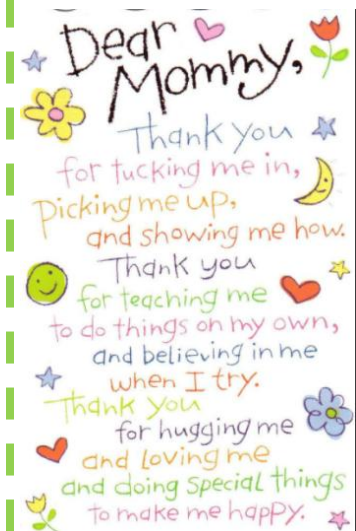 Dear
Mommy,
Thank you
for tucking me in,
Picking me up,
and showing me how.
Thank you
for teaching me
to do things on my own,
and believing in me
when I try.
Thank you
for hugging me
and loving me
and doing special things
to make me happy.